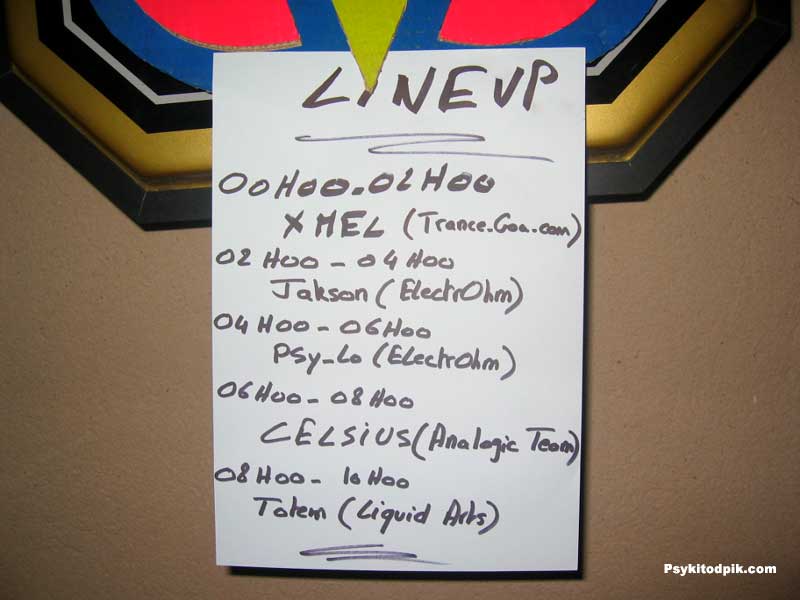 LINEUP
00H00-02H00
XMEL (Trance-Goa.com)
02H00 - 04H00
Jakson (ElectrOhm)
04H00 - 06H00
Psy_Lo (ElectrOhm)
06H00 - 08H00
CELSIUS (Analogic Team)
08H00 - 10H00
Totem (Liquid Arts)
Psykitodpik.com